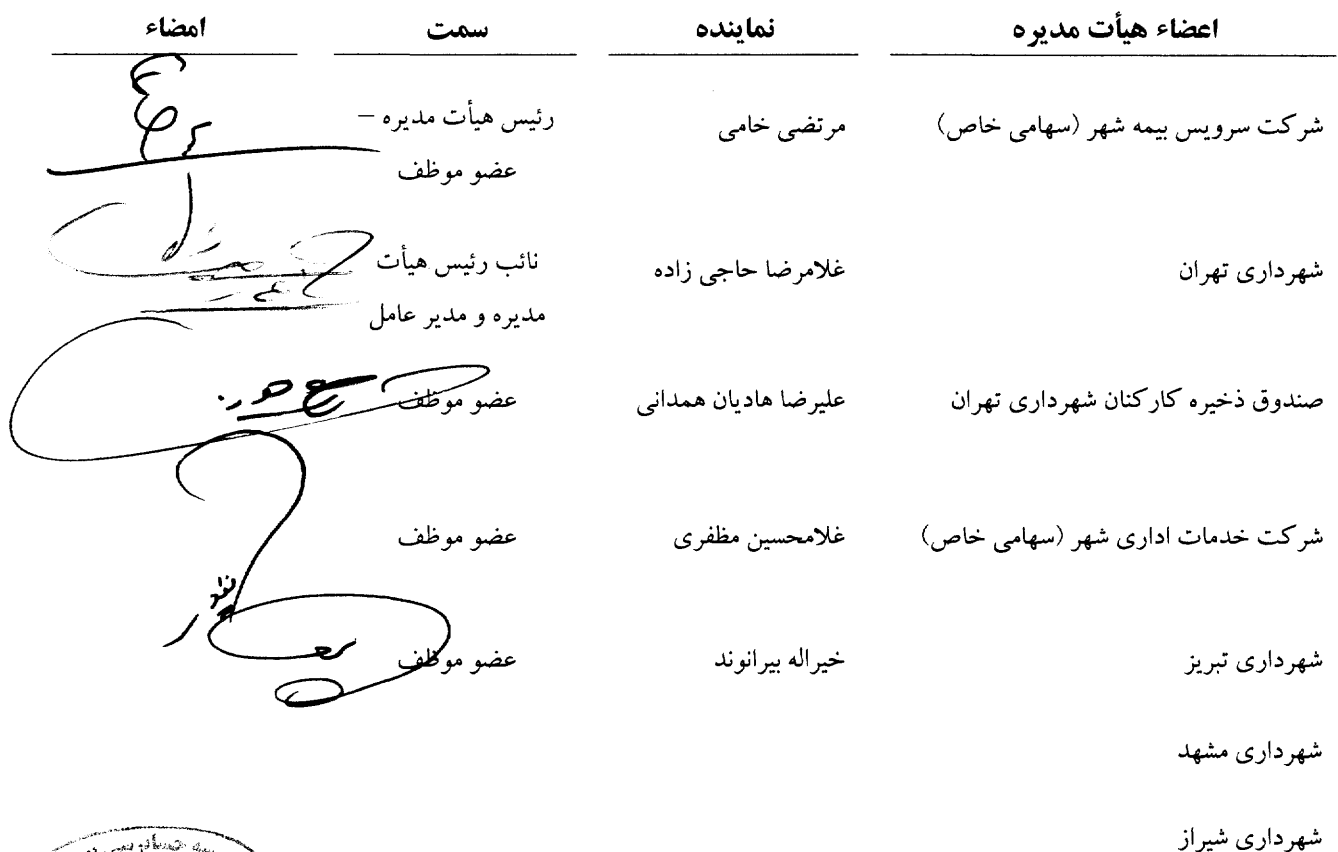 اعضاء هیأت مدیره نماینده سمت امضاء
شرکت سرویس بیمه شهر (سهامی خاص) مرتضی خامی رئیس هیأت مدیره –
عضو موظف
شهرداری تهران غلامرضا حاجی زاده نائب رئیس هیأت
مدیره و مدیر عامل
صندوق ذخیره کارکنان شهرداری تهران علیرضا هادیان همدانی عضو موظف
شرکت خدمات اداری شهر (سهامی خاص) غلامحسین مظفری عضو موظف
شهرداری تبریز خیراله بیرانوند عضو موظف
شهرداری مشهد
شهرداری شیراز